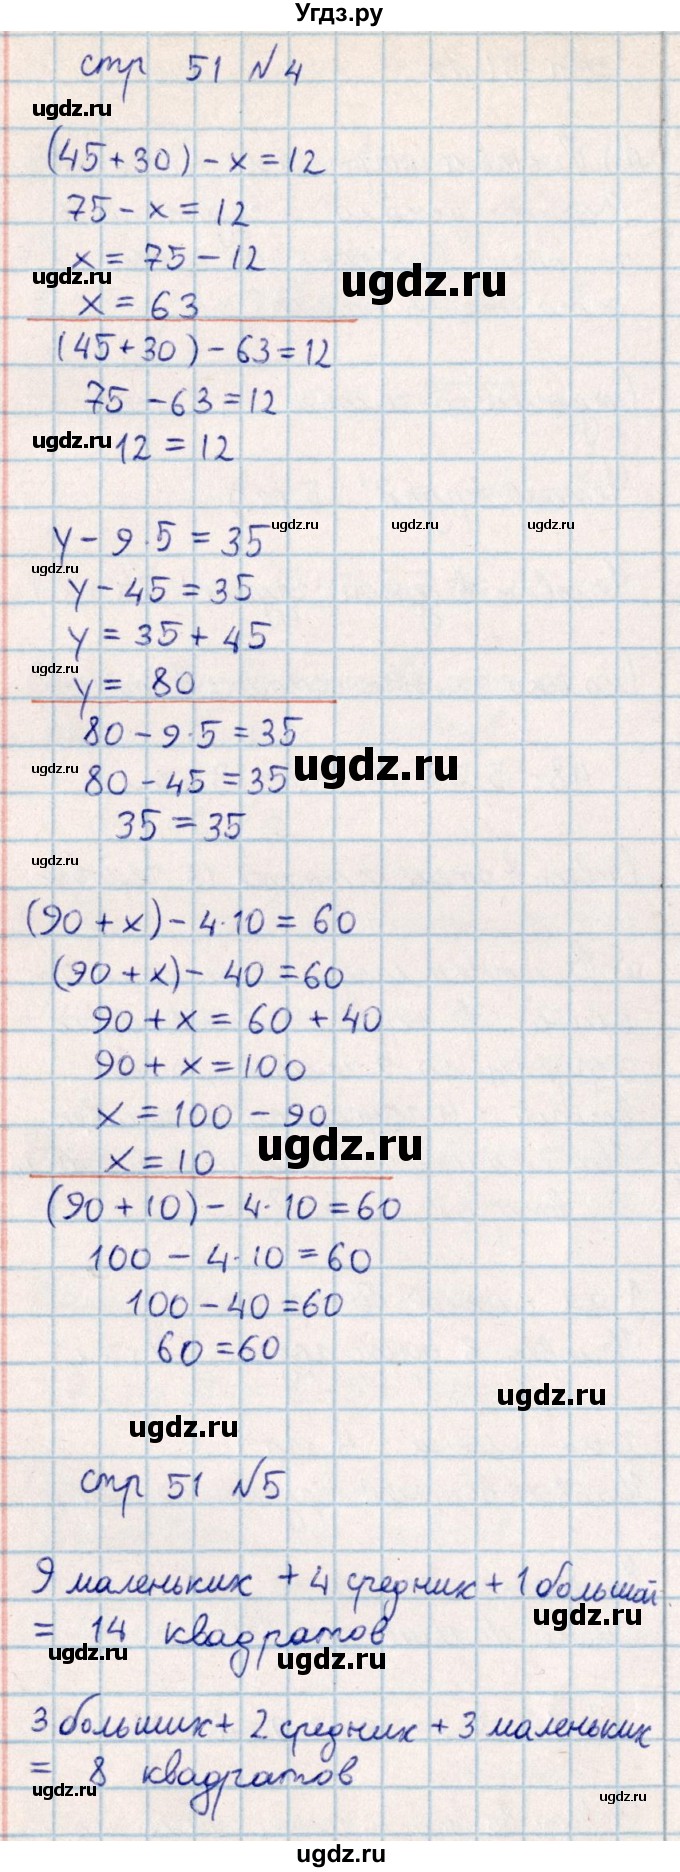 Угдз.ру
стр 51 №4
ugdz.ru
(45+30)-x=12
75-x=12
x=75-12
ugdz.ru
ugdz.ru
x=63
(45+30)-63=12
75-63=12
ugdz.ru
12=12
ugdz.ru ugdz.ru ugdz.ru
y-9·5=35
ugdz.ru
y-45=35
y=35+45
ugdz.ru
y=80
80-9·5=35
ugdz.ru
ugdz.ru
80-45=35
35=35
ugdz.ru
(90+x)-4·10=60
(90+x)-40=60
90+x=60+40
90+x=100
x=100-90
ugdz.ru
x=10
(90+10)-4·10=60
100-4·10=60
100-40=60
60=60
ugdz.ru
ugdz.ru
стр 51 №5
9 маленьких + 4 средних + 1 большой
ugdz.ru
= 14 квадратов
ugdz.ru
ugdz.ru
3 больших + 2 средних + 3 маленьких
= 8 квадратов
ugdz.ru
ugdz.ru
ugdz.ru